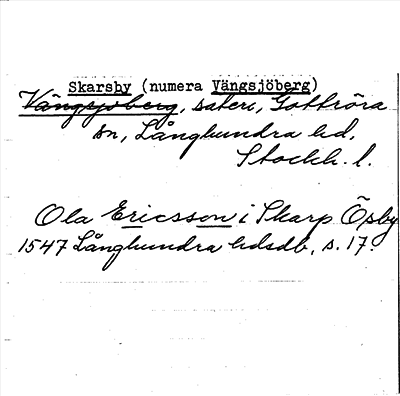 Skarsby (numera Vängsjöberg)
Vängsjöberg, säteri, Gottröra
sn, Långhundra hd,
Stockh. l.
Ola Ericsson i Skarp Ösby
1547 Långhundra hdsdb, s. 17.